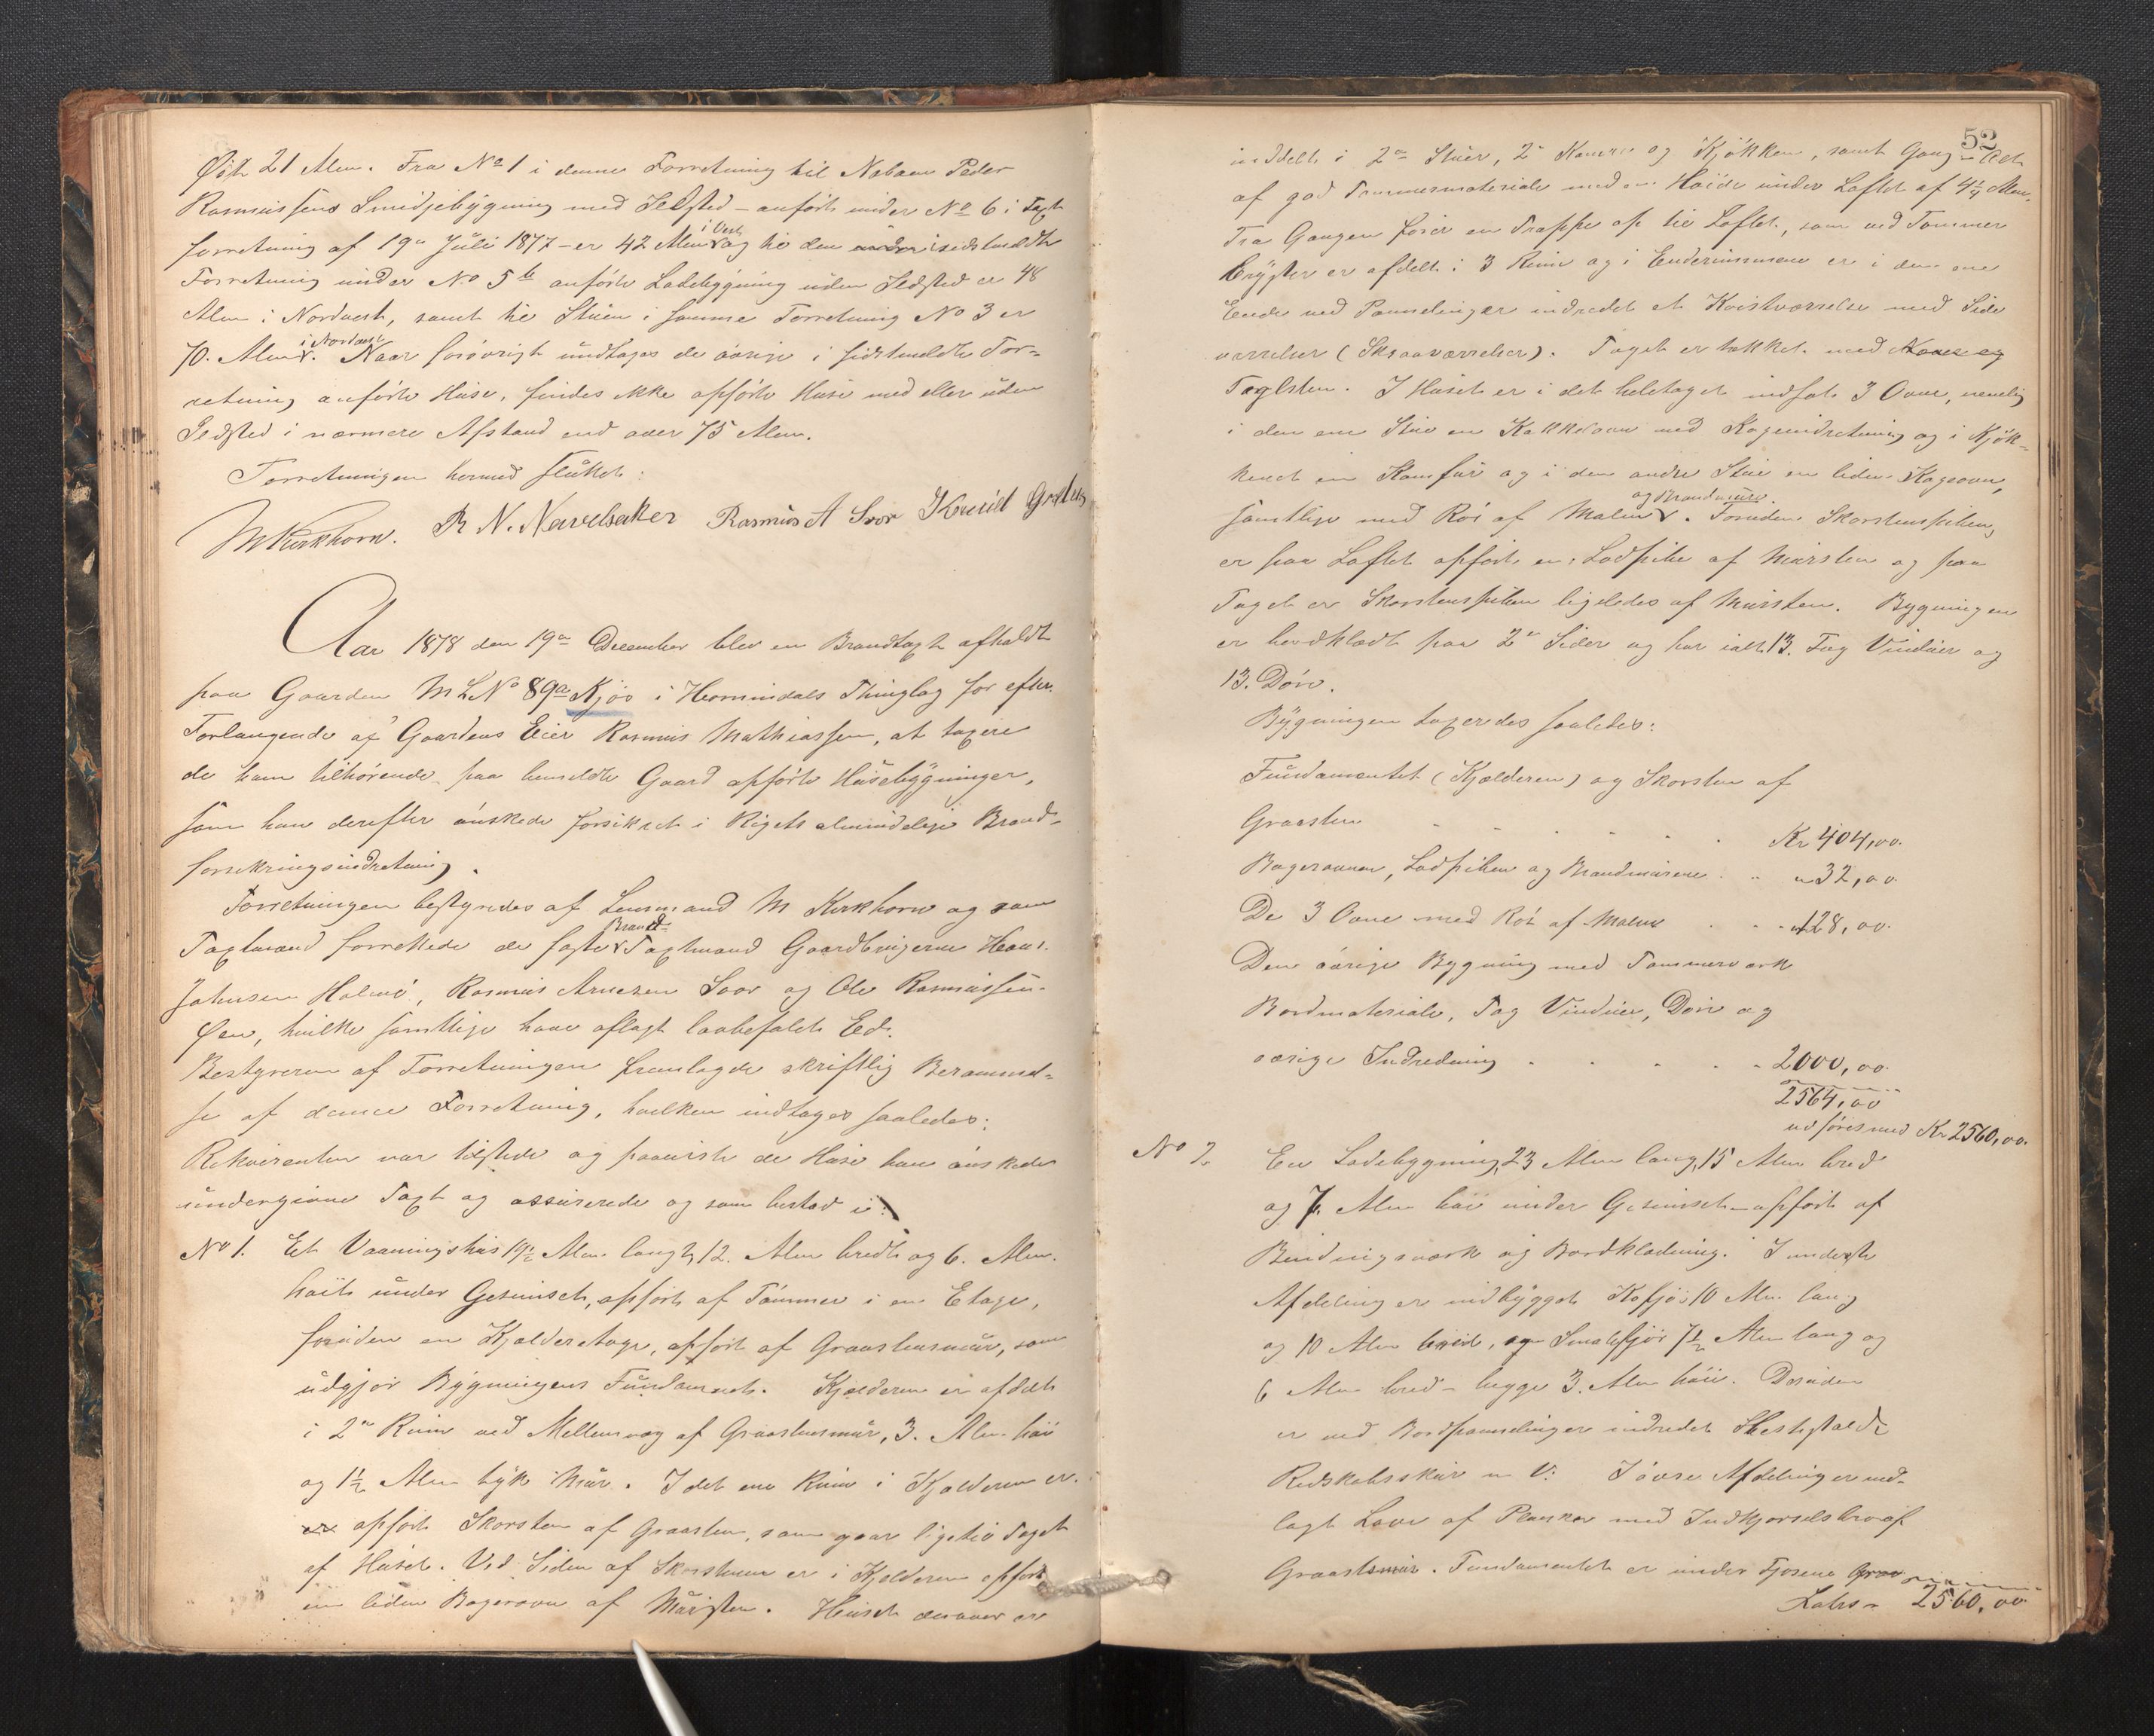 Øst 21 Alen. Fra No 1 i denne Forretning til Naboen Peder
Rasmussens Smidjebygning med Ildsted - anført under No 6 i Taxt
forretning af 19de Juli 1877 - er 42 Alen i Vest og til den under i sidstmeldte
Forretning under No 5 b anførte Ladebygning uden Ildsted er 48
Alen i Nordvest, samt til Stuen i samme Forretning No 3 er
70. Alen i Nordvest. Naar forøvrigt undtages de øvrige i sidstmeldte For=
retning anførte Huse, findes ikke opførte Huse med eller uden
Ildsted i nærmere Afstand end over 75 Alen.
Forretningen hermed sluttet:
M Kirkhorn. R N. Navelsaker Rasmus A Svor Knud
Aar 1878 den 19de December blev en Brandtaxt afholdt
paa Gaarden M L No 89a Kjøs i Hornindals Thinglag for efter
Forlangende af Gaardens Eier Rasmus Mathiassen, at taxere
de ham tilhørende paa bemeldte Gaard opførte Husebygninger,
som han derefter ønskede forsikret i Rigets almindelige Brand=
forsikringsindretning.
Forretningen bestyredes af Lensmand M Kirkhorn og som
Taxtmænd forrettede de faste Brand Taxtmænd Gaardbrugerne Hans
Johnsen Holmø, Rasmus Arnesen Svor og Ole Rasmussen
Øen, hvilke samtlige have aflagt lovbefalet Ed.
Bestyreren af Forretningen fremlagde skriftlig Berammel=
se af denne Forretning, hvilken indtages saaledes:
Rekvirenten var tilstede og paaviste de Huse han ønskede
undergivne Taxt og assurerede og som bestod i:
No 1. Et Vaaningshus 19½ Alen langt, 12. Alen bredt og 6. Alen
høit under Gesimset, opført af Tømmer i en Etage,
foruden en Kjælderetage, opført af Graastensmur, som
udgjør Bygningens Fundament. Kjælderen er afdelt
i 2de Rum ved Mellemvæg af Graastensmur, 3. Alen høi
og 1½ Alen tyk Mur. I det ene Rum i Kjælderen er
er opført Skorsten af Graasten, som gaar ligetil Taget
af Huset. Ved Siden af Skorstenen er i Kjælderen opført
en liden Bagerovn af Mursten. Huset derover er
52
inddelt i 2de Stuer, 2de Kamre og Kjøkken, samt Gang - Alt
af god Tømmermateriale med en Høide under Loftet af 4¼ Alen.
Fra Gangen fører en Trappe op til Loftet, som ved Tømmer
brøster er afdelt i 3 Rum og i Enderummene er i den ene
Ende ved Panelinger indredet et Kvistværrelse med Side
værrelser (Skraaværrelser). Taget er tækket med Næver og
Taglsten. I Huset er i det heletaget indsat 3 Ovne, nemlig
i den ene Stue en Kakkelovn med Kogeindretning og i Kjøk=
kenet en Komfur og i den andre Stue en liden Kogeovn,
samtlige med Rør af Malm og Brandmure. Foruden Skorstenspiben,
er paa Loftet opført en Lodpibe af Mursten og paa
Taget er Skorstenspiben ligeledes af Mursten. Bygningen
er bordklædt paa 2de Sider og har ialt 13. Fag Vinduer og
13. Døre.
Bygningen taxeredes saaledes:
Fundamentet (Kjælderen) og Skorsten af
Graasten Kr 404,00.
Bagerovnen, Lodpiben og Brandmurene " 32,00.
De 3 Ovne med Rør af Malm " 128,00.
Den øvrige Bygning med Tømmerværk
Bordmateriale, Tag Vinduer, Døre og
øvrige Indredning 2000,00.
2564,00
udføres med Kr 2560,00.
No 2 En Ladebygning, 23 Alen lang, 15 Alen bred
og 7. Alen høi under Gesimset - opført af
Bindingsværk og Bordklædning. I underste
Afdeling er indbygget Kofjøs 10 Alen lang
og 10 Alen bred, og Smalefjøs 7½ Alen lang og
6 Alen bred - begge 3. Alen høie. Desuden
er ved Bordpanelinger indredet Hestestald
Redskabsskur m V. I øvre Afdeling er ned=
lagt Lave af Planker med Indkjørselsbro af
Graastsmur. Fundamentet er under Fjøsene Graa
Lateris 2560,00